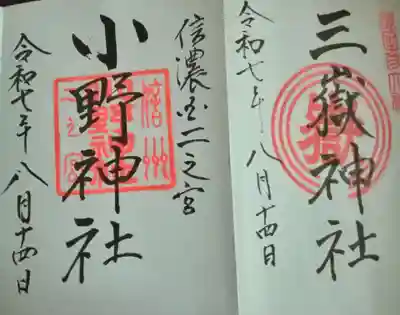 三嶽神社
令和七年八月十四日
信濃国二之宮
小野神社
令和七年八月十四日